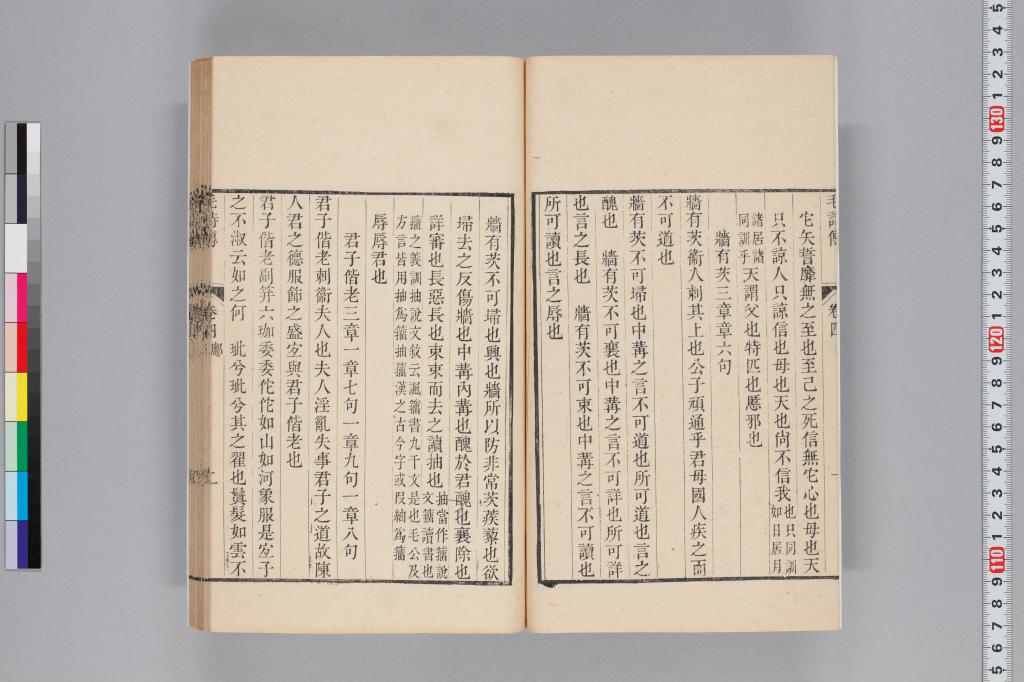 毛詩傳
卷四
它矢誓靡無之至也至己之死信無它心也母也天
只不諒人只諒信也母也天也尙不信我也只同訓如日居月
諸居諸同訓乎天謂父也特匹也慝邪也
牆有茨三章章六句
牆有茨衞人刺其上也公子頑通乎君母國人疾之而
不可道也
牆有茨不可埽也中冓之言不可道也所可道也言之
醜也　牆有茨不可襄也中冓之言不可詳也所可詳
也言之長也　牆有茨不可束也中冓之言不可讀也
所可讀也言之辱也
牆有茨不可埽也興也牆所以防非常茨蒺藜也欲
埽去之反傷牆也中冓內冓也醜於君醜也襄除也
詳審也長惡長也束束而去之讀抽也抽當作籀說文籀讀書也
籀之義訓抽說文敘云諷籀書九千文是也毛公及
方言皆用抽爲籀抽籀漢之古今字或叚紬爲籀
辱辱君也
君子偕老三章一章七句一章九句一章八句
君子偕老刺衞夫人也夫人淫亂失事君子之道故陳
人君之德服飾之盛宜與君子偕老也
君子偕老副笄六珈委委佗佗如山如河象服是宜子
之不淑云如之何　玼兮玼兮其之翟也鬒髮如雲不
毛詩傳
卷四鄘